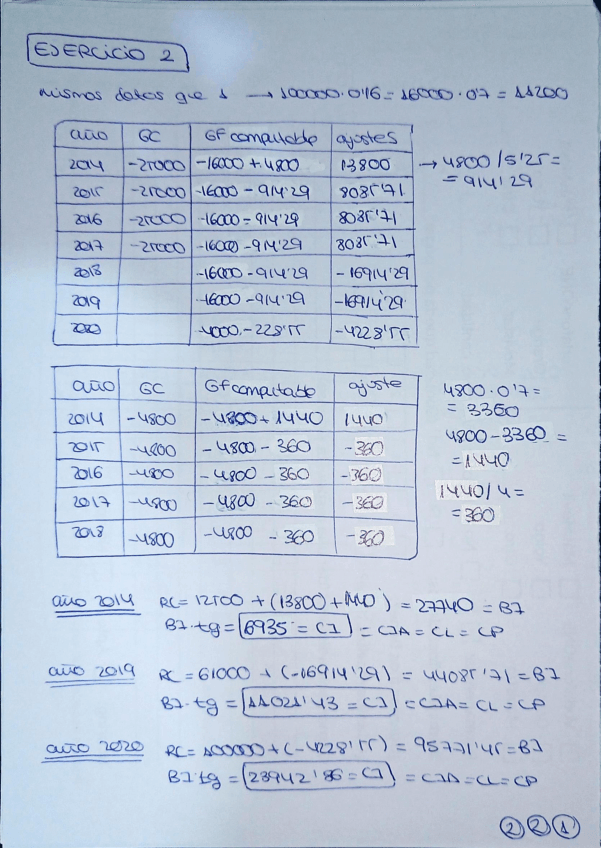 EJERCICIO 2
mismos datos que 1 → 100000·0'16 = 16000·0'7 = 11200
año GC GF computable ajustes
2014 -25000 -16000 + 4800 13800 → 4800 / 5'25 =
= 914'29
2015 -25000 -16000 - 914'29 8085'71
2016 -25000 -16000 - 914'29 8085'71
2017 -25000 -16000 - 914'29 8085'71
2018 -16000 - 914'29 -16914'29
2019 -16000 - 914'29 -16914'29
2020 -4000 - 228'55 -4228'55
año GC GF computable ajuste
2014 -4800 -4800 + 1440 1440
2015 -4800 -4800 - 360 -360
2016 -4800 -4800 - 360 -360
2017 -4800 -4800 - 360 -360
2018 -4800 -4800 - 360 -360
4800·0'7 =
= 3360
4800 - 3360 =
= 1440
1440/4 =
= 360
año 2014 RC = 12500 + (13800 + 1440) = 27740 = BI
BI·tg = 6935 = CI = CIA = CL = CP
año 2019 RC = 61000 + (-16914'29) = 44085'71 = BI
BI·tg = 11021'43 = CI = CIA = CL = CP
año 2020 RC = 100000 + (-4228'55) = 95771'45 = BI
BI·tg = 23942'86 = CI = CIA = CL = CP
2 2 1